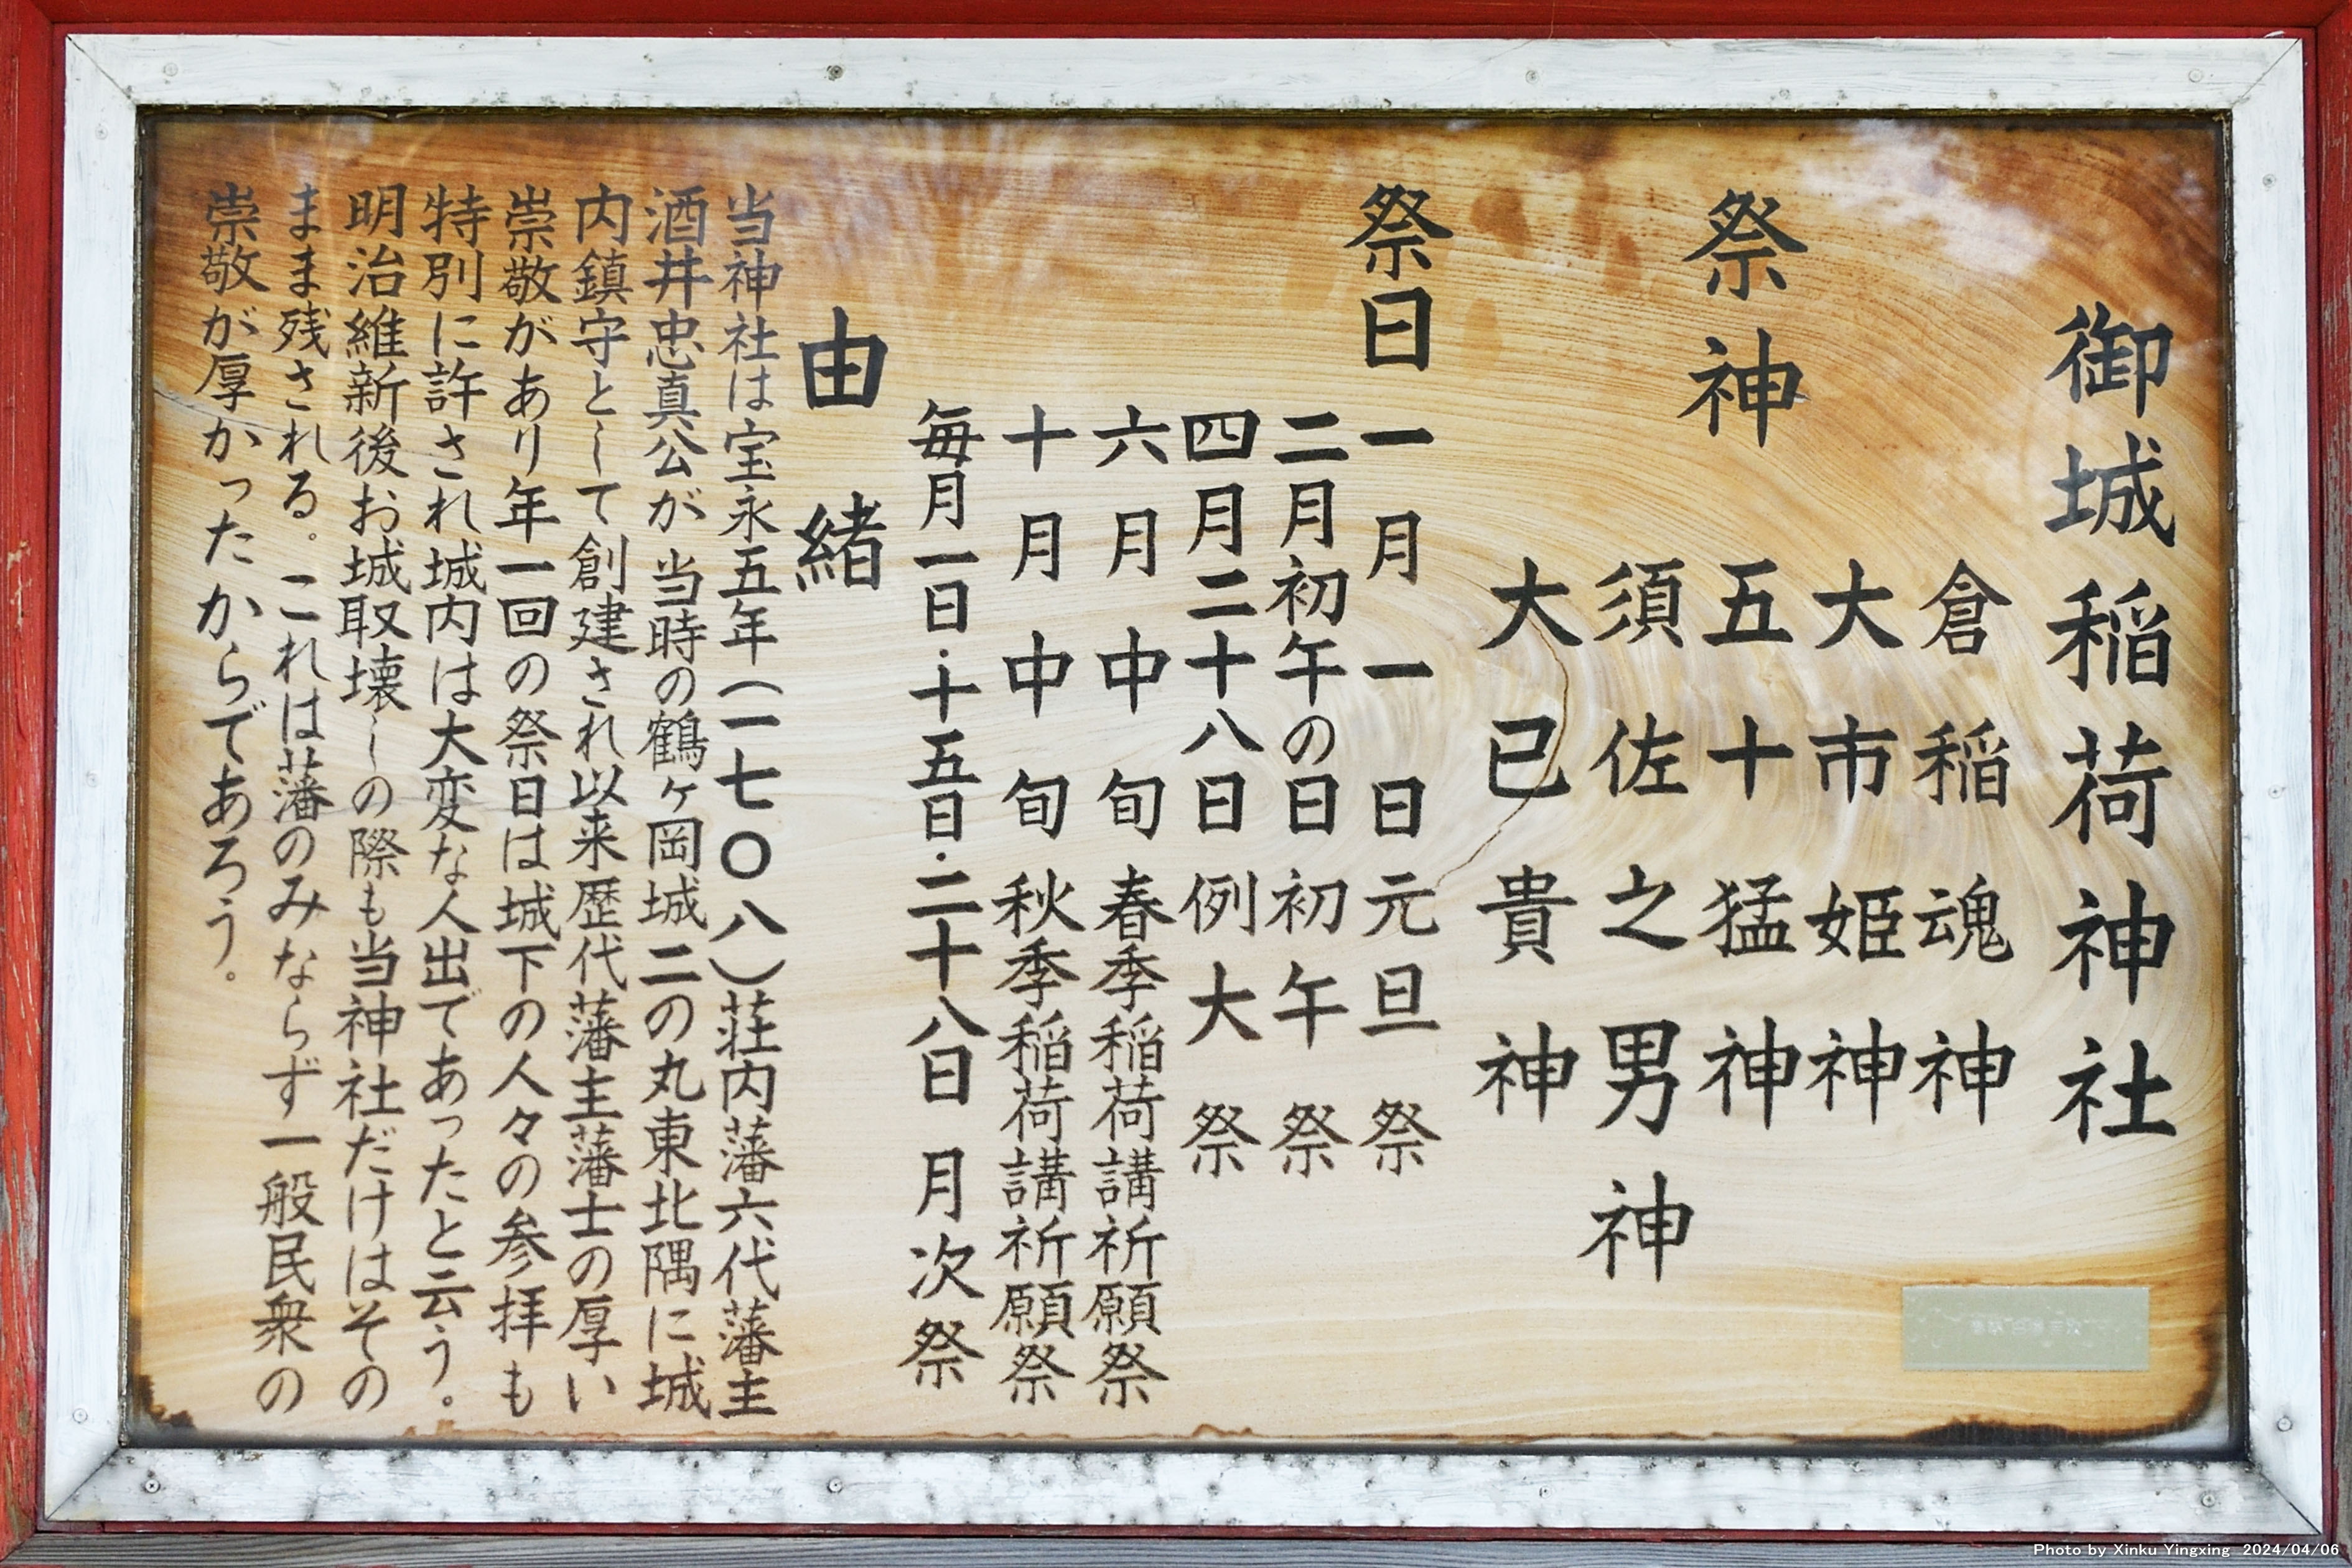 御城稲荷神社
祭神
倉稲魂神
大市姫神
五十猛神
須佐之男神
大已貴神
祭日
一月一日元旦祭
二月初午の日初午祭
四月二十八日例大祭
六月中旬春季稲荷講祈願祭
十月中旬秋季稲荷講祈願祭
毎月一日・十五日・二十八日 月次祭
由緒
当神社は宝永五年(一七〇八)荘内藩六代藩主
酒井忠真公が当時の鶴ヶ岡城二の丸東北隅に城
内鎮守として創建され以来歴代藩主藩士の厚い
崇敬があり年一回の祭日は城下の人々の参拝も
特別に許され城内は大変な人出であったと云う。
明治維新後お城取壊しの際も当神社だけはその
まま残される。これは藩のみならず一般民衆の
崇敬が厚かったからであろう。
Photo by Xinku Yingxing 2024/04/06